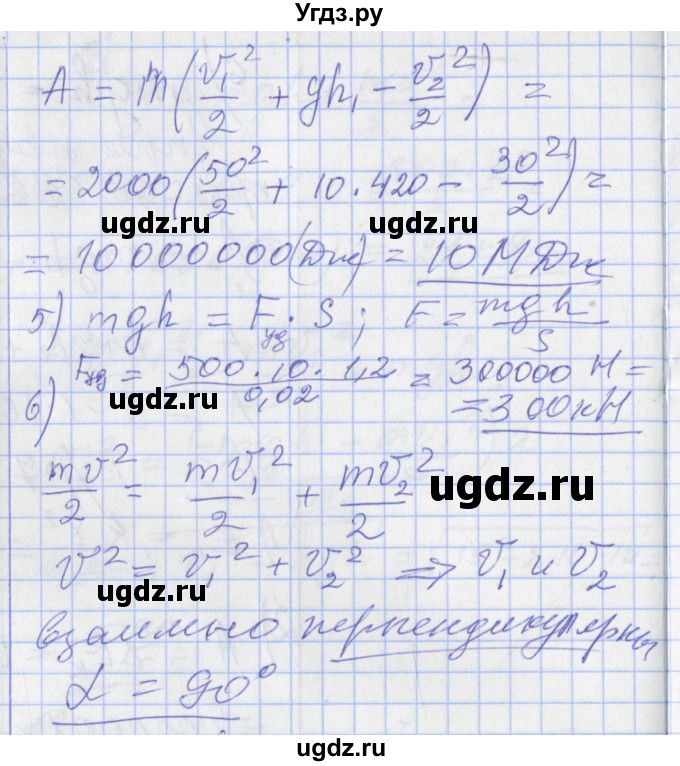 Угдз.ру
A = m(v₁²/2 + gh₁ - v₂²/2) =
= 2000(50²/2 + 10·420 - 30²/2) =
ugdz.ru ugdz.ru
= 10000000(Дж) = 10 МДж
5) mgh = Fуд · S ; F = mgh/S
Fуд = 500·10·1,2/0,02 = 300000 Н =
ugdz.ru
6) = 300кН
mv²/2 = mv₁²/2 + mv₂²/2
ugdz.ru
v² = v₁² + v₂² ⇒ v₁ и v₂
ugdz.ru
взаимно перпендикулярны
α = 90°
ugdz.ru
ugdz.ru